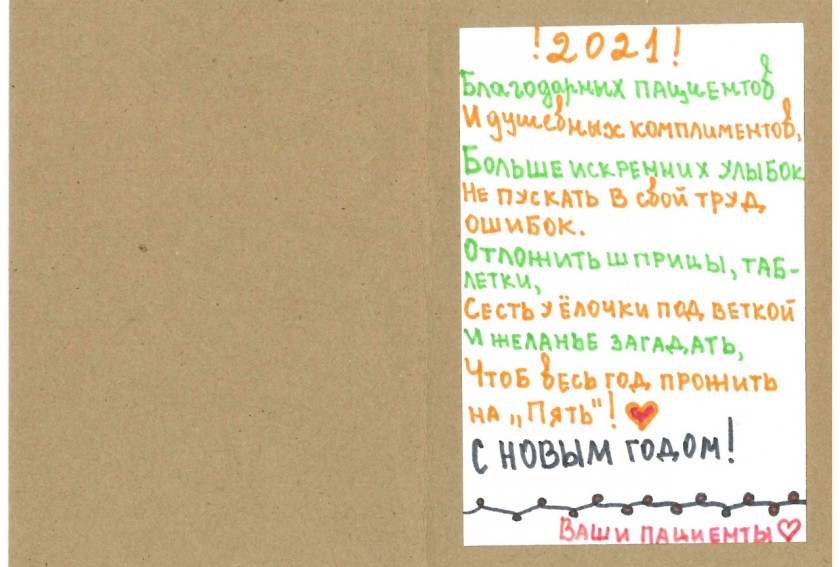 !2021!
Благодарных пациентов
И душевных комплиментов,
Больше искренних улыбок
Не пускать в свой труд
ошибок.
Отложить шприцы, таб-
летки,
Сесть у ёлочки под веткой
И желанье загадать,
Чтоб весь год прожить
на „Пять"!
С новым годом!
Ваши пациенты